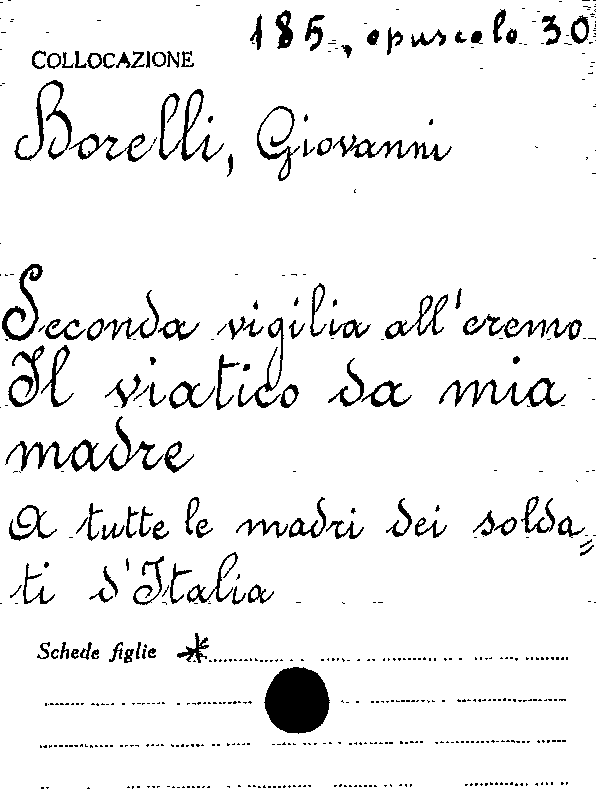 185, opuscolo 30
COLLOCAZIONE
Borelli, Giovanni
Seconda vigilia all'eremo
Il viatico da mia
madre
A tutte le madri dei solda=
ti d'Italia
Schede figlie *